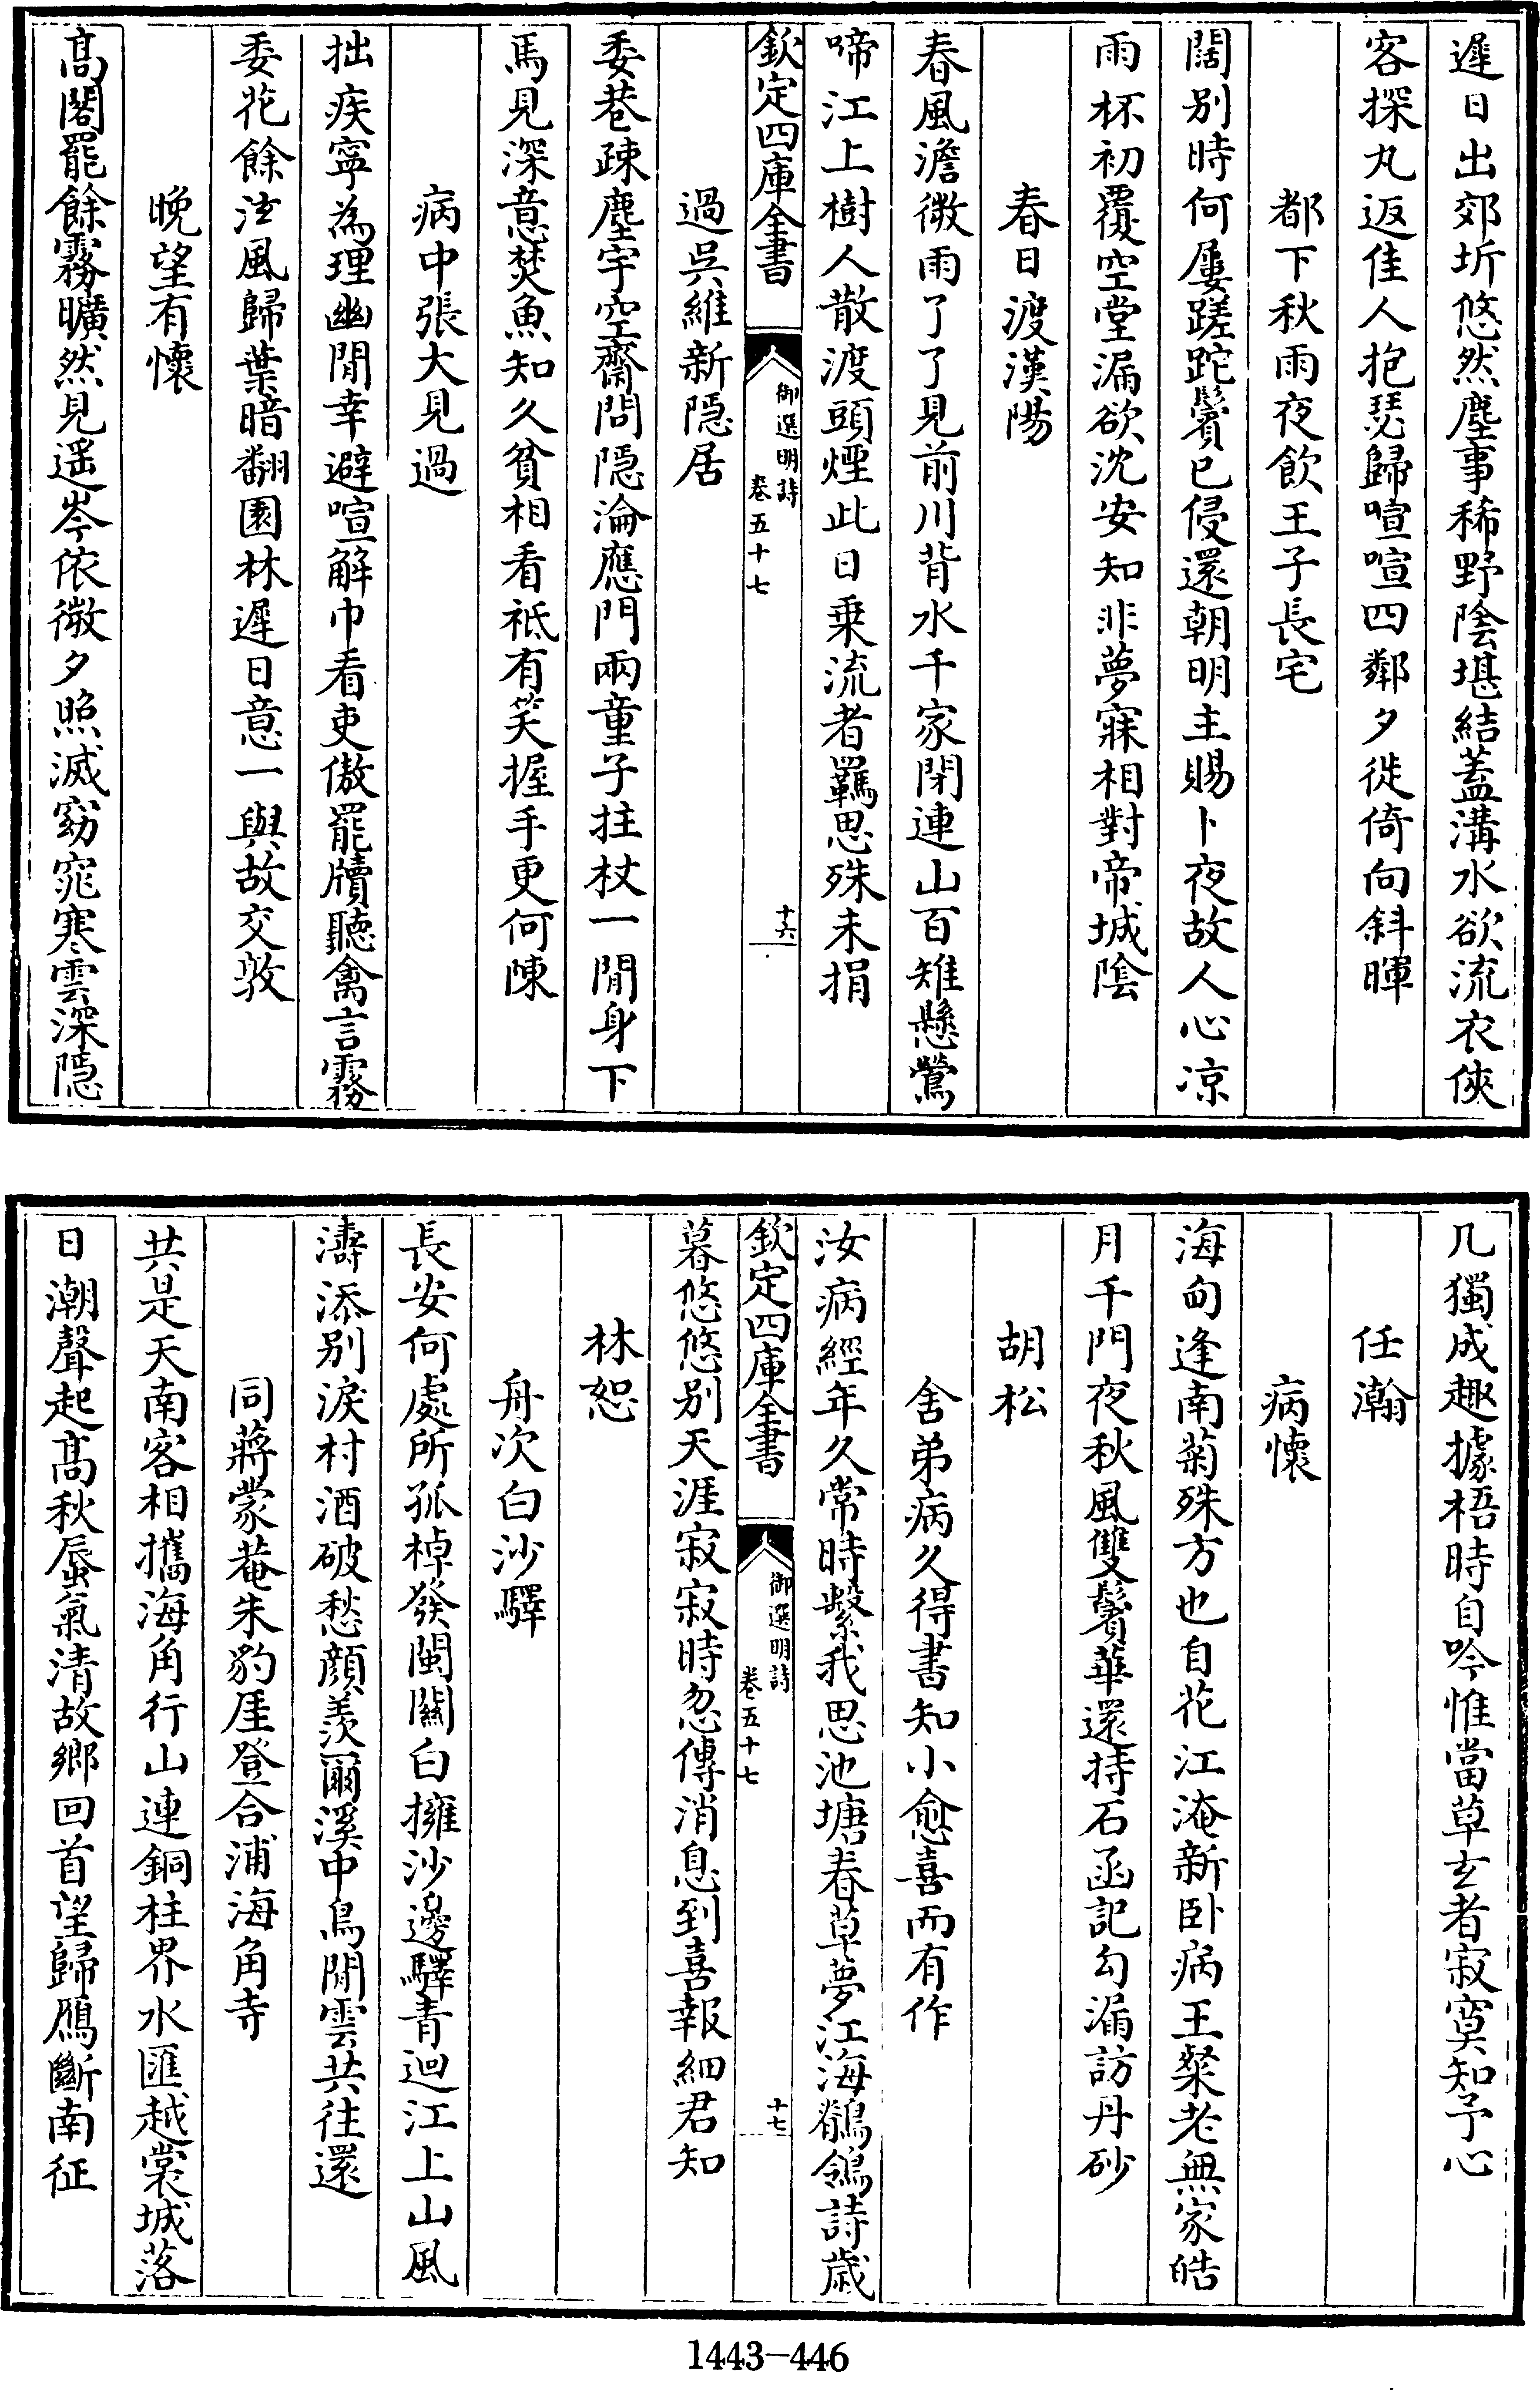 遲日出郊圻悠然塵事稀野陰堪結蓋溝水欲流衣俠
客探丸返佳人抱瑟歸喧喧四鄰夕徙倚向斜暉
都下秋雨夜飲王子長宅
闊別時何屢蹉跎鬢已侵還朝明主賜卜夜故人心涼
雨杯初覆空堂漏欲沈安知非夢寐相對帝城陰
春日渡漢陽
春風澹微雨了了見前川背水千家閉連山百雉懸鶯
啼江上樹人散渡頭煙此日乗流者羈思殊未捐
欽定四庫全書
御選明詩
卷五十七
十六
過吳維新隱居
委巷疎塵宇空齋問隱淪應門兩童子拄杖一閒身下
馬見深意焚魚知久貧相看祗有笑握手更何陳
病中張大見過
拙疾寧為理幽閒幸避喧解巾看吏傲罷牘聽禽言霧
委花餘泫風歸葉暗翻園林遲日意一與故交敦
晚望有懷
髙閣罷餘霧曠然見遥岑依微夕照滅窈窕寒雲深隱
几獨成趣據梧時自吟惟當草玄者寂寞知予心
任瀚
病懷
海甸逢南菊殊方也自花江淹新卧病王粲老無家皓
月千門夜秋風雙鬢華還持石函記勾漏訪丹砂
胡松
舍弟病久得書知小愈喜而有作
汝病經年久常時繫我思池塘春草夢江海鶺鴒詩歲
欽定四庫全書
御選明詩
卷五十七
十七
暮悠悠别天涯寂寂時忽傳消息到喜報細君知
林恕
舟次白沙驛
長安何處所孤棹發閩關白擁沙邊驛青迴江上山風
濤添别淚村酒破愁顔羨爾溪中鳥閒雲共往還
同蔣蒙菴朱豹厓登合浦海角寺
共是天南客相攜海角行山連銅柱界水匯越裳城落
日潮聲起髙秋蜃氣清故鄉回首望歸鴈斷南征
1443-446